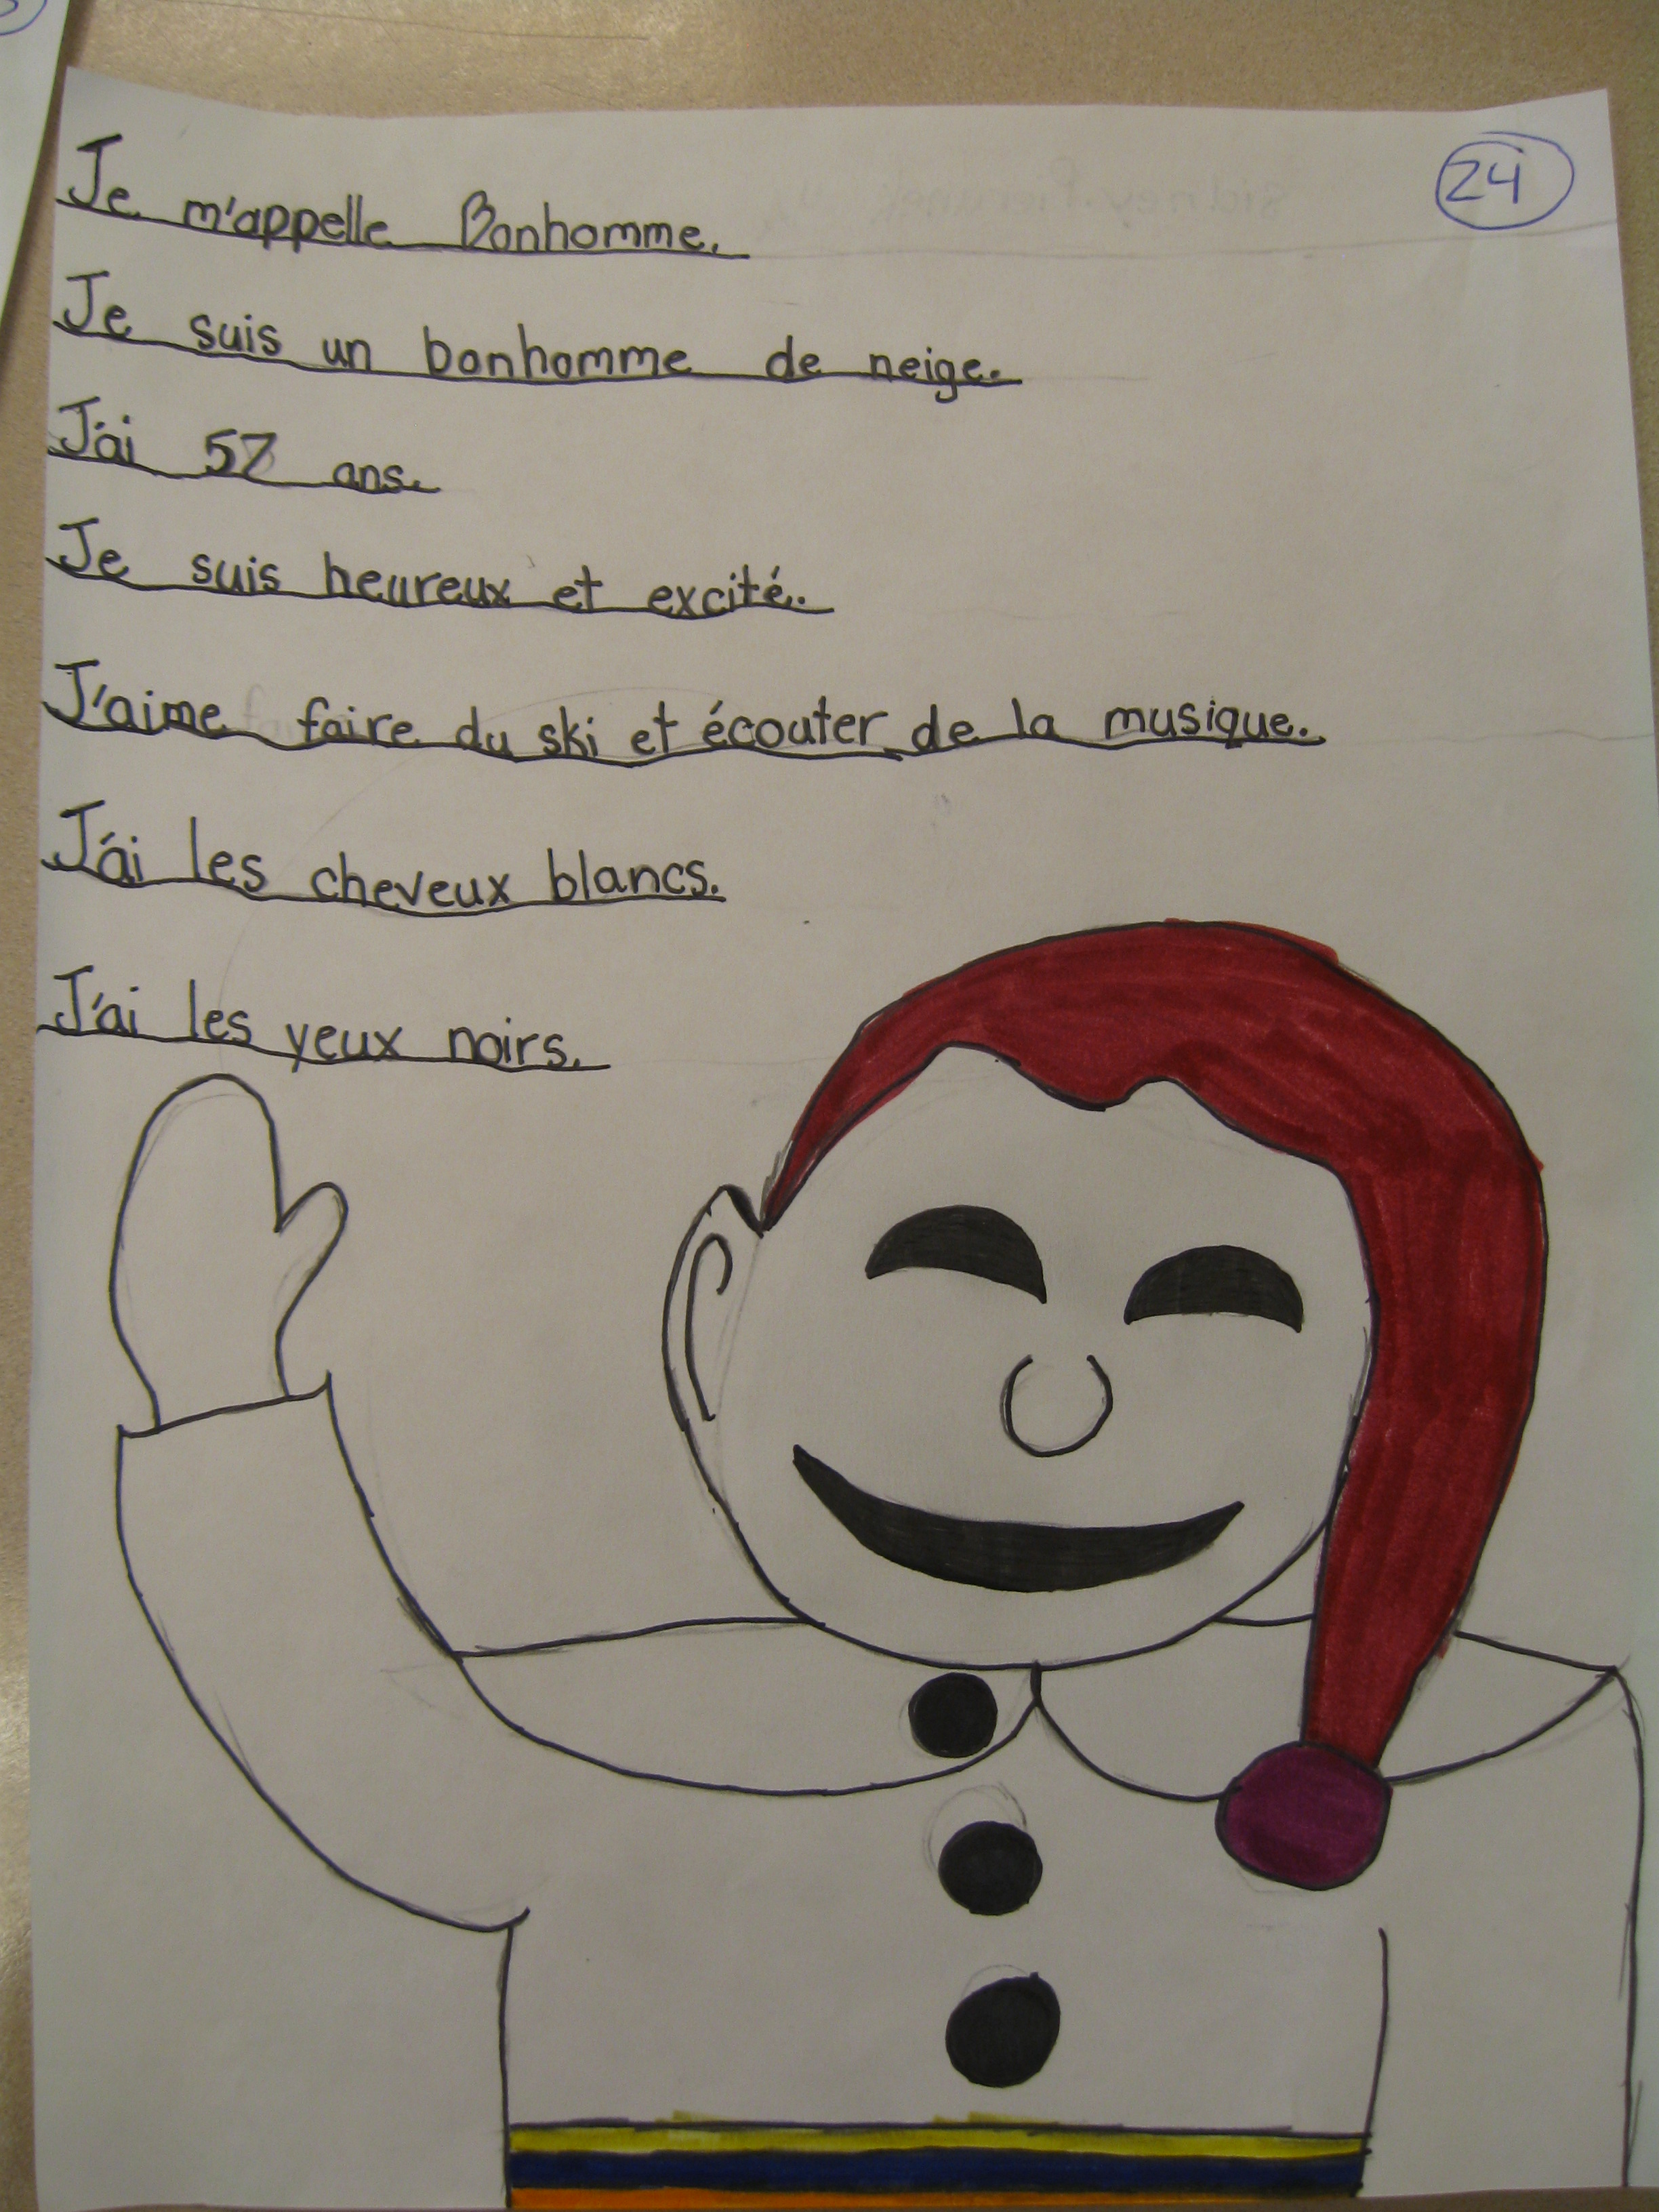 24
Je m'appelle Bonhomme.
Je suis un bonhomme de neige.
J'ai 57 ans.
Je suis heureux et excité.
J'aime faire du ski et écouter de la musique.
J'ai les cheveux blancs.
J'ai les yeux noirs.